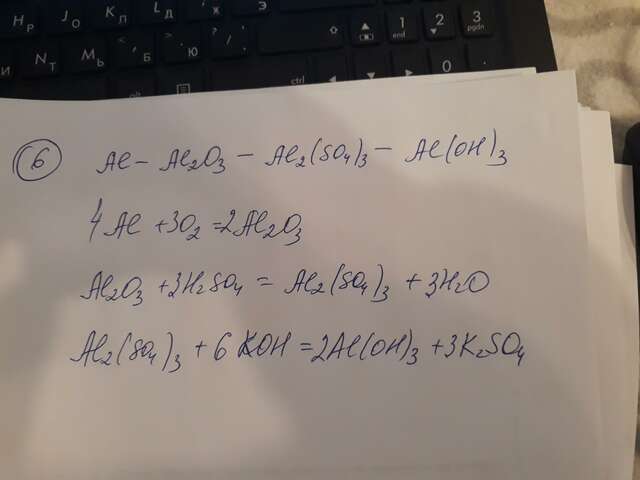 H P J O K Л L Д Ж Э
И N T M Ь < , Б > . Ю ? / .
1 end 2 3 pgdn
ctrl 0
6 Al - Al₂O₃ - Al₂(SO₄)₃ - Al(OH)₃
4Al + 3O₂ = 2Al₂O₃
Al₂O₃ + 3H₂SO₄ = Al₂(SO₄)₃ + 3H₂O
Al₂(SO₄)₃ + 6 KOH = 2Al(OH)₃ + 3K₂SO₄